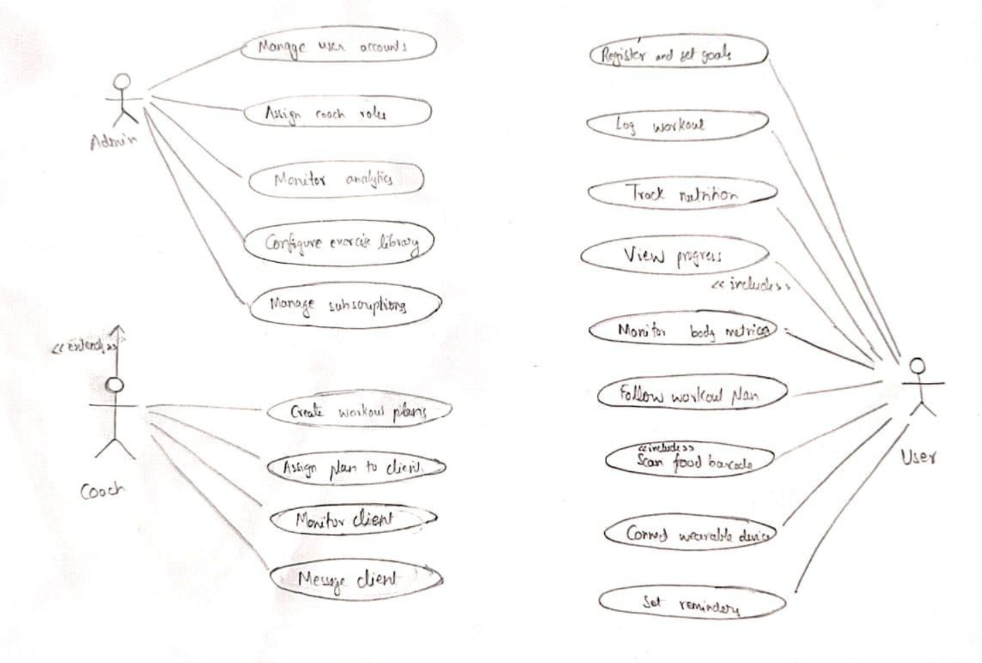 Manage user accounts
Assign coach roles
Admin
Monitor analytics
Configure exercise library
Manage subscriptions
<<extend>>
Create workout plans
Assign plan to client
Coach
Monitor client
Message client
Register and set goals
Log workout
Track nutrition
View progress
<<include>>
Monitor body metrics
Follow workout plan
<<include>>
Scan food barcode
User
Connect wearable device
Set reminders